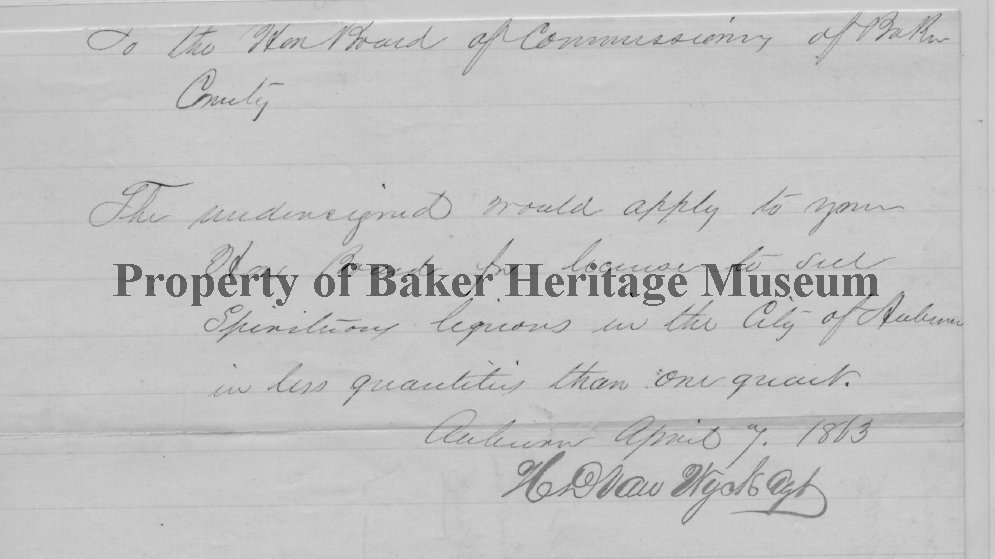 To the Hon Board of Commissioners of Baker
County
The undersigned would apply to your
Hon Board for license to sell
Property of Baker Heritage Museum
Spirituous liquors in the City of Auburn
in less quantities than one quart.
Auburn April 7. 1863
H D Van Wyck Agt